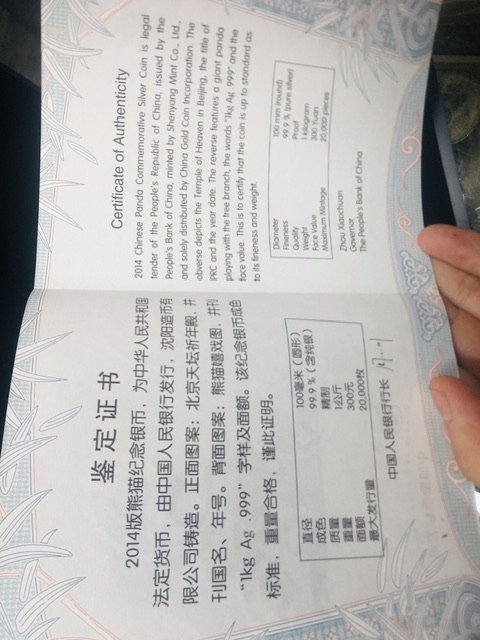 鉴定证书
2014版熊猫纪念银币，为中华人民共和国
法定货币，由中国人民银行发行，沈阳造币有
限公司铸造。正面图案：北京天坛祈年殿，并
刊国名、年号。背面图案：熊猫嬉戏图，并刊
“1kg Ag .999”字样及面额。该纪念银币成色
标准，重量合格，谨此证明。
直径 100毫米（圆形）
成色 99.9％（含纯银）
质量 精制
重量 1公斤
面额 300元
最大发行量 20,000枚
中国人民银行行长
Certificate of Authenticity
2014 Chinese Panda Commemorative Silver Coin is legal
tender of the People's Republic of China, issued by the
People's Bank of China, minted by Shenyang Mint Co., Ltd.,
and solely distributed by China Gold Coin Incorporation. The
obverse depicts the Temple of Heaven in Beijing, the title of
PRC and the year date. The reverse features a giant panda
playing with the tree branch, the words "1kg Ag .999" and the
face value. This is to certify that the coin is up to standard as
to its fineness and weight.
Diameter 100 mm (round)
Fineness 99.9 % (pure silver)
Quality Proof
Weight 1 kilogram
Face Value 300 Yuan
Maximum Mintage 20,000 pieces
Zhou Xiaochuan
Governor
The People's Bank of China